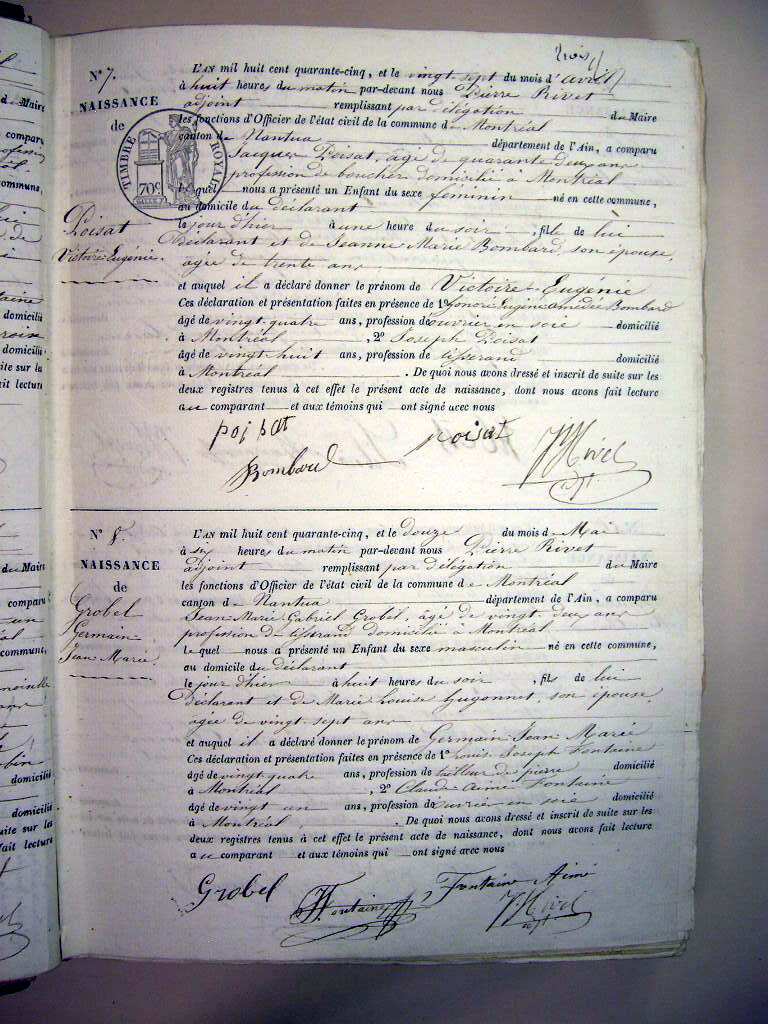 trois
N° 7.
NAISSANCE
de
TIMBRE ROYAL
70c
Poisat
Victoire Eugénie.
L'AN mil huit cent quarante-cinq, et le vingt-sept du mois d'avril
à huit heures du matin par-devant nous Pierre Rivet
adjoint remplissant par délégation du Maire
les fonctions d'Officier de l'état civil de la commune de Montréal
canton de Nantua département de l'Ain, a comparu
Jacques Poisat, âgé de quarante deux ans
profession de boucher domicilié à Montréal
lequel nous a présenté un Enfant du sexe féminin né en cette commune,
au domicile du déclarant
le jour d'hier à une heure du soir, fille de lui
Déclarant et de Jeanne Marie Bombard, son épouse,
agée de trente ans
et auquel il a déclaré donner le prénom de Victoire-Eugénie
Ces déclaration et présentation faites en présence de 1° honoré Eugène amédée Bombard
âgé de vingt-quatre ans, profession d'ouvrier en soie domicilié
à Montréal, 2° Joseph Poisat
âgé de vingt huit ans, profession de tisserand domicilié
à Montréal. De quoi nous avons dressé et inscrit de suite sur les
deux registres tenus à cet effet le présent acte de naissance, dont nous avons fait lecture
au comparant et aux témoins qui ont signé avec nous
poisat poisat
Bombard JRivet
adjt
N° 8.
NAISSANCE
de
Grobel
Germain
Jean Marie.
L'AN mil huit cent quarante-cinq, et le douze du mois de Mai
à six heures du matin par-devant nous Pierre Rivet
adjoint remplissant par délégation du Maire
les fonctions d'Officier de l'état civil de la commune de Montréal
canton de Nantua département de l'Ain, a comparu
Jean-Marie Gabriel Grobel, âgé de vingt-deux ans
profession de tisserand domicilié à Montréal
le quel nous a présenté un Enfant du sexe masculin né en cette commune,
au domicile du déclarant
le jour d'hier à huit heures du soir, fils de lui
déclarant et de Marie Louise Gugonnet, son épouse,
agée de vingt-sept ans
et auquel il a déclaré donner le prénom de Germain Jean Marie
Ces déclaration et présentation faites en présence de 1° Louis Joseph Fontaine
âgé de vingt-quatre ans, profession de tailleur de pierre domicilié
à Montréal, 2° Claude Aimé Fontaine
âgé de vingt un ans, profession d'ouvrier en soie domicilié
à Montréal. De quoi nous avons dressé et inscrit de suite sur les
deux registres tenus à cet effet le présent acte de naissance, dont nous avons fait lecture
au comparant et aux témoins qui ont signé avec nous
Grobel Fontaine Fontaine Aimé
JRivet
adjt